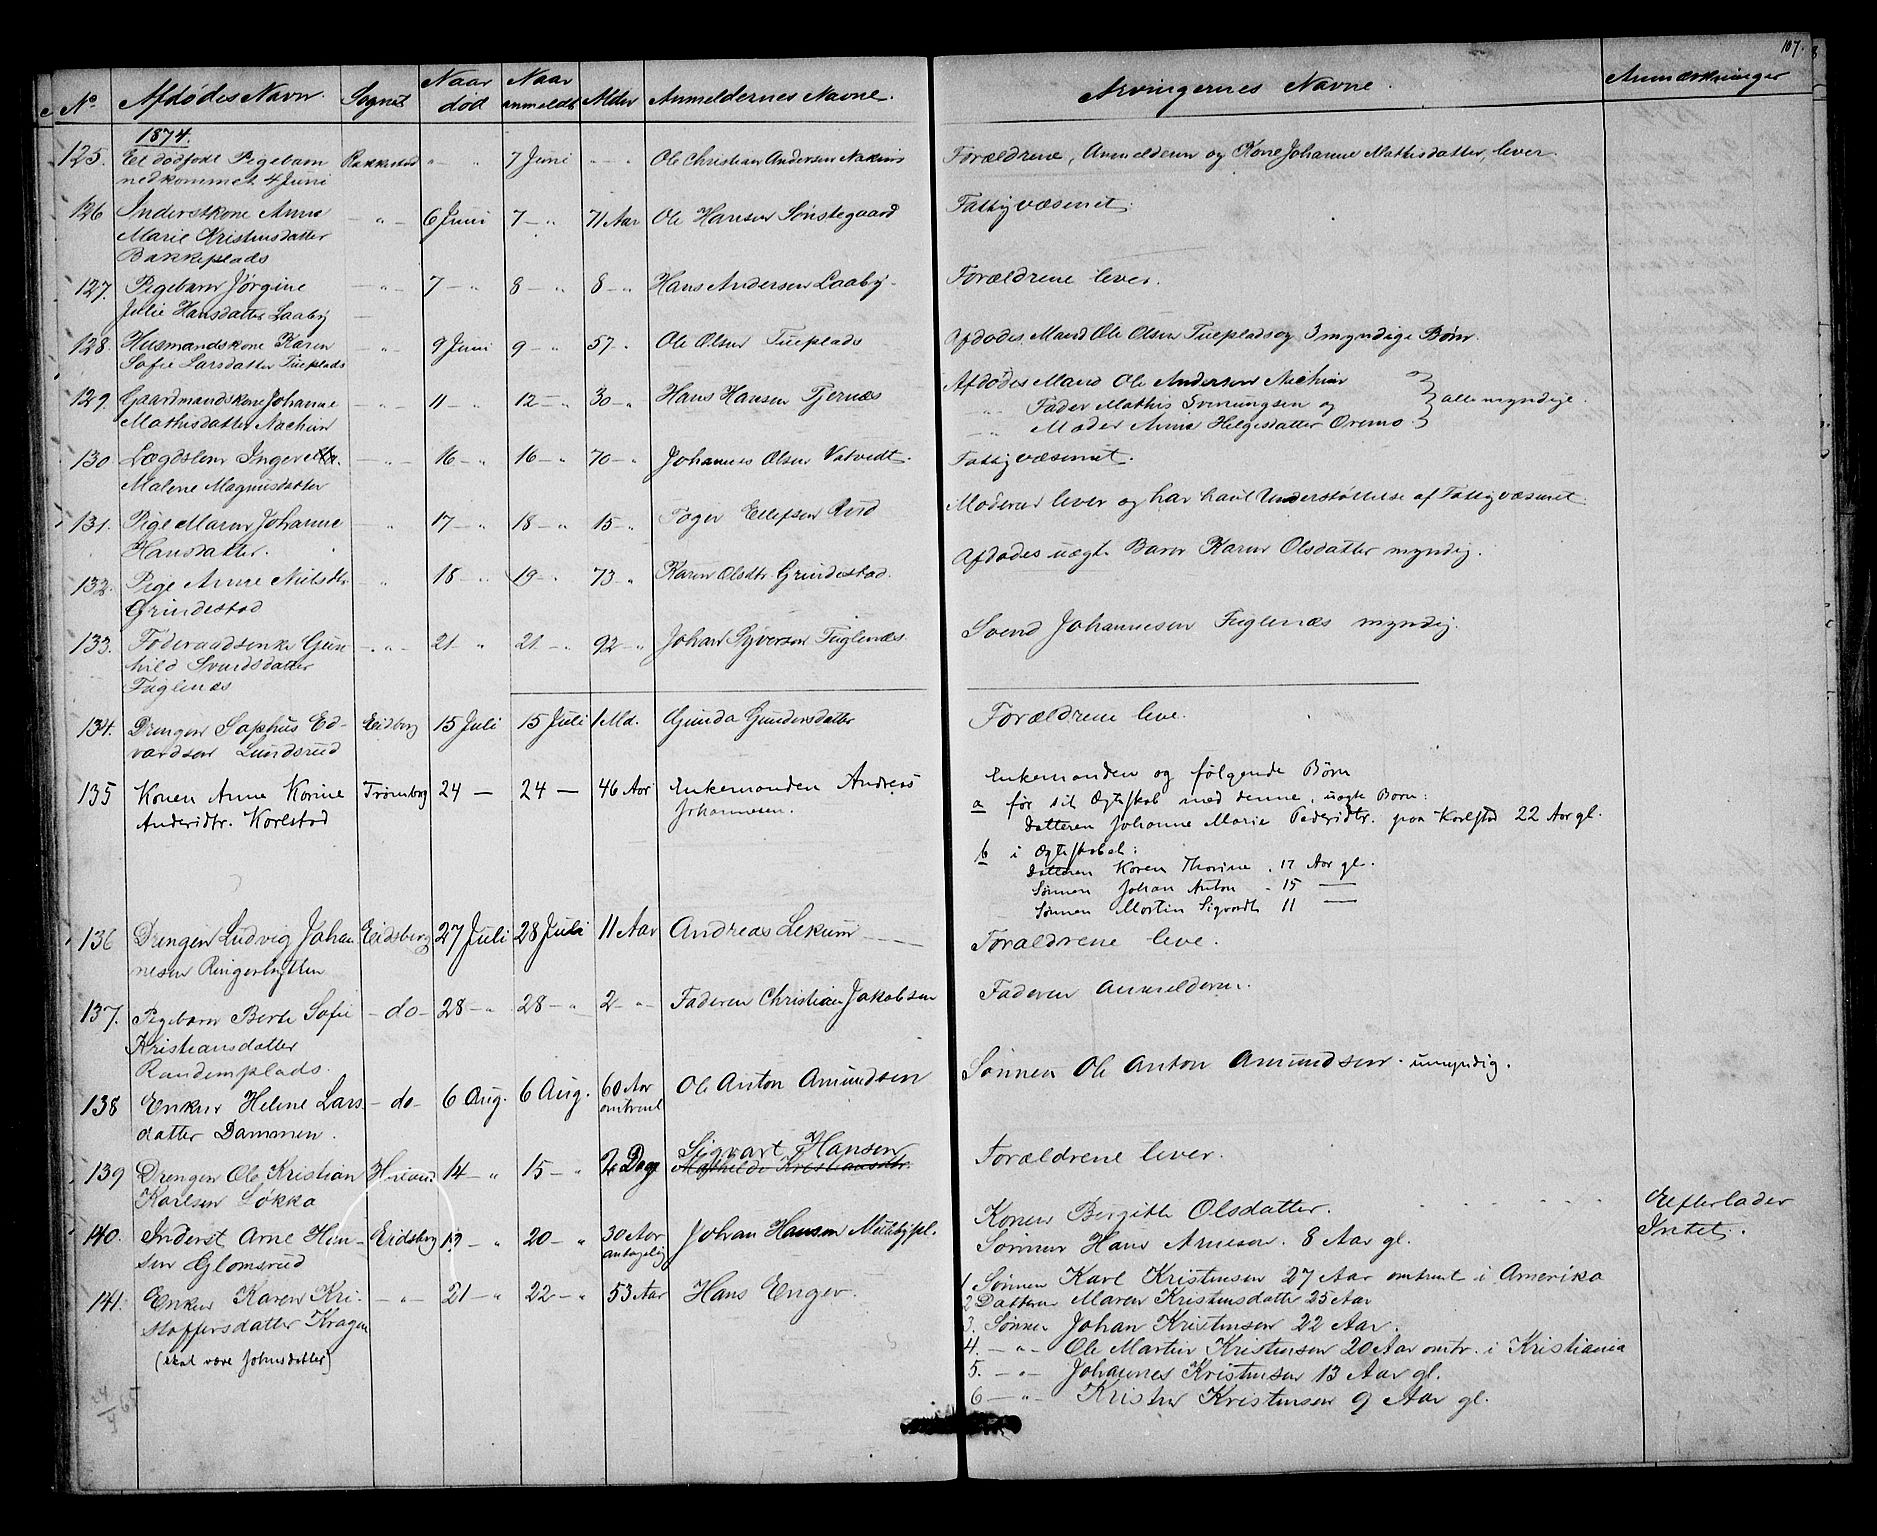 107.
No. Afdødes Navn. Sognet Naar død Naar anmeldt Alder Anmeldernes Navne. Arvingernes Navne. Anmærkninger
1874.
125. Et dødfødt Pigebarn Rakkestad " " 7 Juni " " Ole Christian Andersen Forældrene, Anmelderen og Kone Johanne Mathisdatter, lever.
nedkommet 4 Juni
126 Inderstkone Anne - " - 6 Juni 7 - " 71 Aar Ole Hansen Sønstegaard Fattigvæsenet.
Marie Kristensdatter
Bakkeplads
127. Pigebarn Jørgine - " - 7 - " 8 - " 8 - " Hans Andersen Laaby. Forældrene lever.
Julie Hansdatter Laaby
128. Husmandskone Karen - " - 9 Juni 9 - " 57 - " Ole Olsen Tueplads Afdødes Mand Ole Olsen Tueplads og 3 myndige Børn.
Sofie Larsdatter Tueplads
129. Gaardmandskone Johanne - " - 11 - " 12 - " 30 - " Hans Hansen Tjernæs Afdødes Mand Ole Andersen
Mathisdatter - " - Fader Mathis Svenungsen og } alle myndige.
- " - Moder Anne Helgesdatter Oremo.
130 Lægdslem Inger - " - 16 - " 16 - " 70 - " Johannes Olsen Vatvedt. Fattigvæsenet.
Malene Magnusdatter
131. Pige Maren Johanne " 17 - " 18 - " 15 - " Ellefsen Rud Moderen lever og har havt Understøttelse af Fattigvæsenet.
Hansdatter.
132. Pige Anne Nielsdtr. " 18 - " 19 - " 73 - " Karen Olsdtr. Grindestad. Afdødes uægte Barn Karen Olsdatter myndig.
Grindestad
133. Føderaadsenke Gun - " - 21 " 21 - " 92 - " Johan Syversen Fuglenæs. Svend Johannesen Fuglenæs myndig.
hild Svendsdatter
Fuglenæs
134. Drengen Sophus Ed- Eidberg 15 Juli 15 Juli 1 Md. Gunda Gundersdatter Forældrene leve.
vardsen Lundsrud
135 Konen Anne Karine Trømborg 24 - 24 - 46 Aar Enkemanden Andreas Enkemanden og følgende Børn
Andersdtr. Karlstad Johannesen. a før sit Ægteskab med denne, uægte Barn:
Datteren Johanne Marie Pedersdtr. paa Karlstad 22 Aar gl.
b i Ægteskabet:
Datteren Karen Thorine, 17 Aar gl.
Sønnen Johan Anton - 15 —
Sønnen Martin Sigvardt 11 —
136 Drengen Ludvig Johan Eidsberg 27 Juli 28 Juli 11 Aar Andreas Lekum Forældrene leve.
nesen Ringerhytten
137. Pigebarn Berte Sofie - do - 28 - " 28 - " 2 - " Faderen Christian Jakobsen Faderen Anmelderen.
Kristiansdatter
Randemplads.
138 Enken Helene Lars - do - 6 Aug. 6 Aug. 60 Aar Ole Anton Amundsen Sønnen Ole Anton Amundsen - umyndig.
datter Dammen. omtrent
139 Drengen Ole Kristian 14 - " 15 - " 2 Dage Sigvart Hansen Forældrene lever.
Karlsen Løkka Mathilde Kristiansdtr.
140. Inderst Arne Han- Eidsberg 19 - " 20 - " 30 Aar Johan Hansen Konen Bergitte Olsdatter. Efterlader
sen Glomsrud antagelig Sønnen Hans Arnesen. 8 Aar gl. Intet.
141. Enken Karen Kri- - " - 21 - " 22 - " 53 Aar Hans Enger. 1. Sønnen Karl Kristensen 27 Aar omtrent i Amerika
stoffersdatter Kragen 2 Datteren Maren Kristensdatter 25 Aar
(skal være Johnsdatter) 3. Sønnen Johan Kristensen 22 Aar.
4. - " - Ole Martin Kristensen 20 Aar omtr. i Kristiania
5. - " - Johannes Kristensen 13 Aar gl.
6 - " - Kristen Kristensen 9 Aar gl.